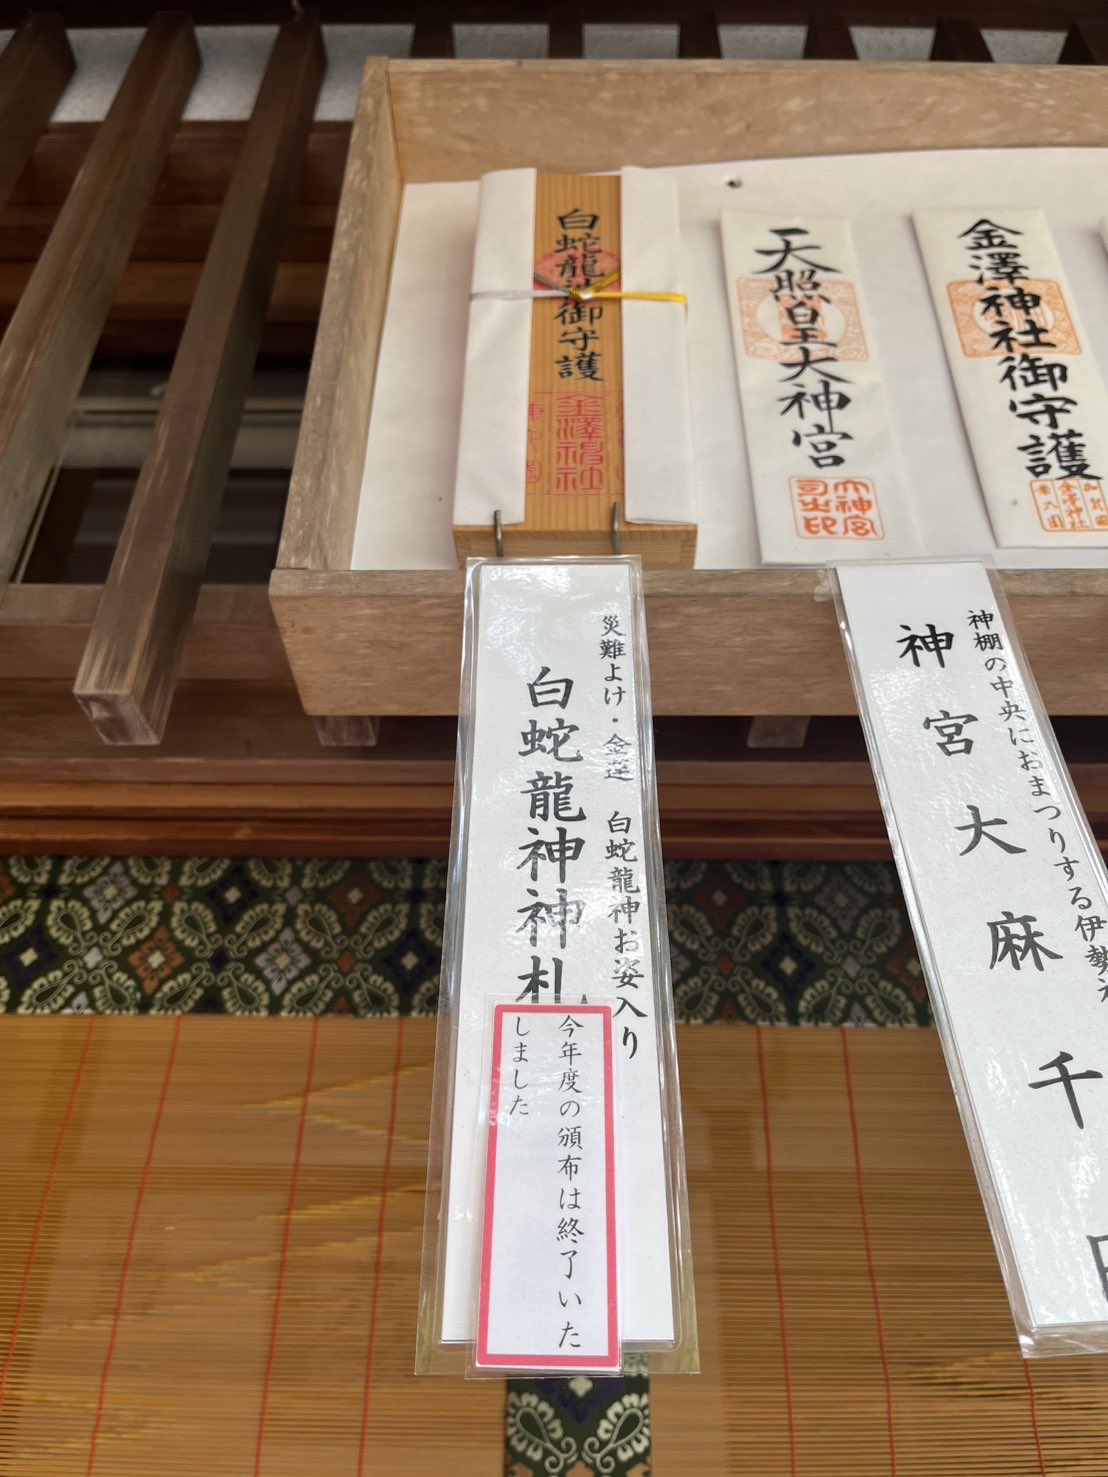 白蛇龍神御守護
金澤神社
天照皇大神宮
大神宮
司之印
金澤神社御守護
金澤神社
災難よけ・金運 白蛇龍神お姿入り
白蛇龍神神札
今年度の頒布は終了いた
しました
神棚の中央におまつりする伊勢神
神宮大麻 千円